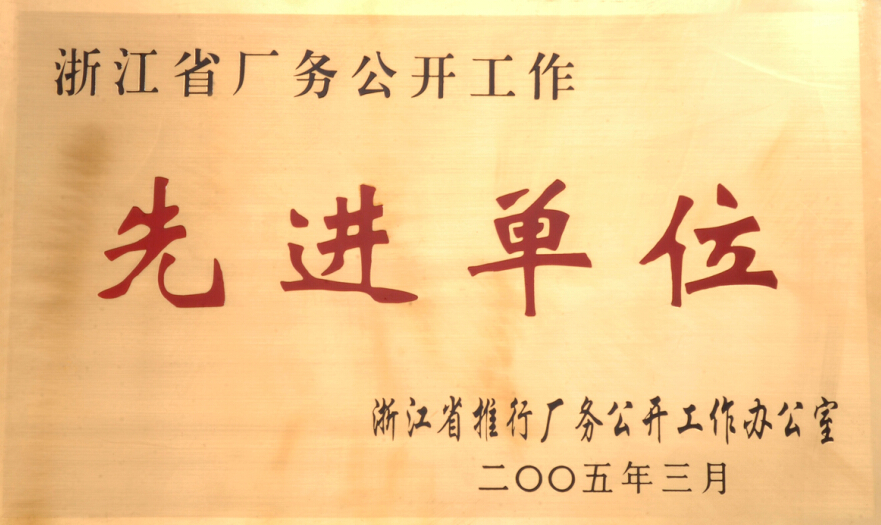 浙江省厂务公开工作
先进单位
浙江省推行厂务公开工作办公室
二〇〇五年三月